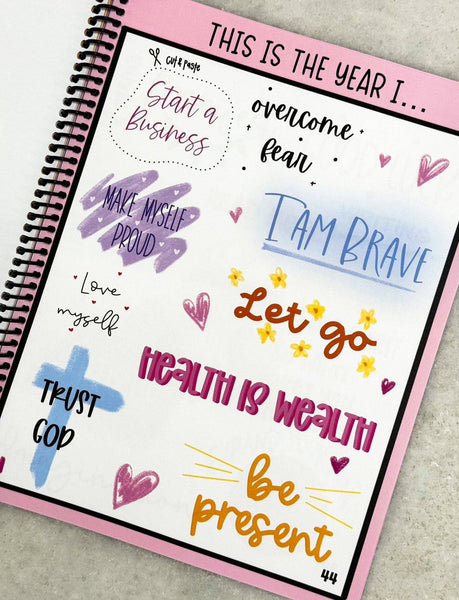 THIS IS THE YEAR I...
CUT & PASTE
Start a
Business
overcome
fear
MAKE MYSELF
PROUD
I AM BRAVE
Love
myself
Let go
HEALTH IS WEALTH
TRUST
GOD
be
present
44